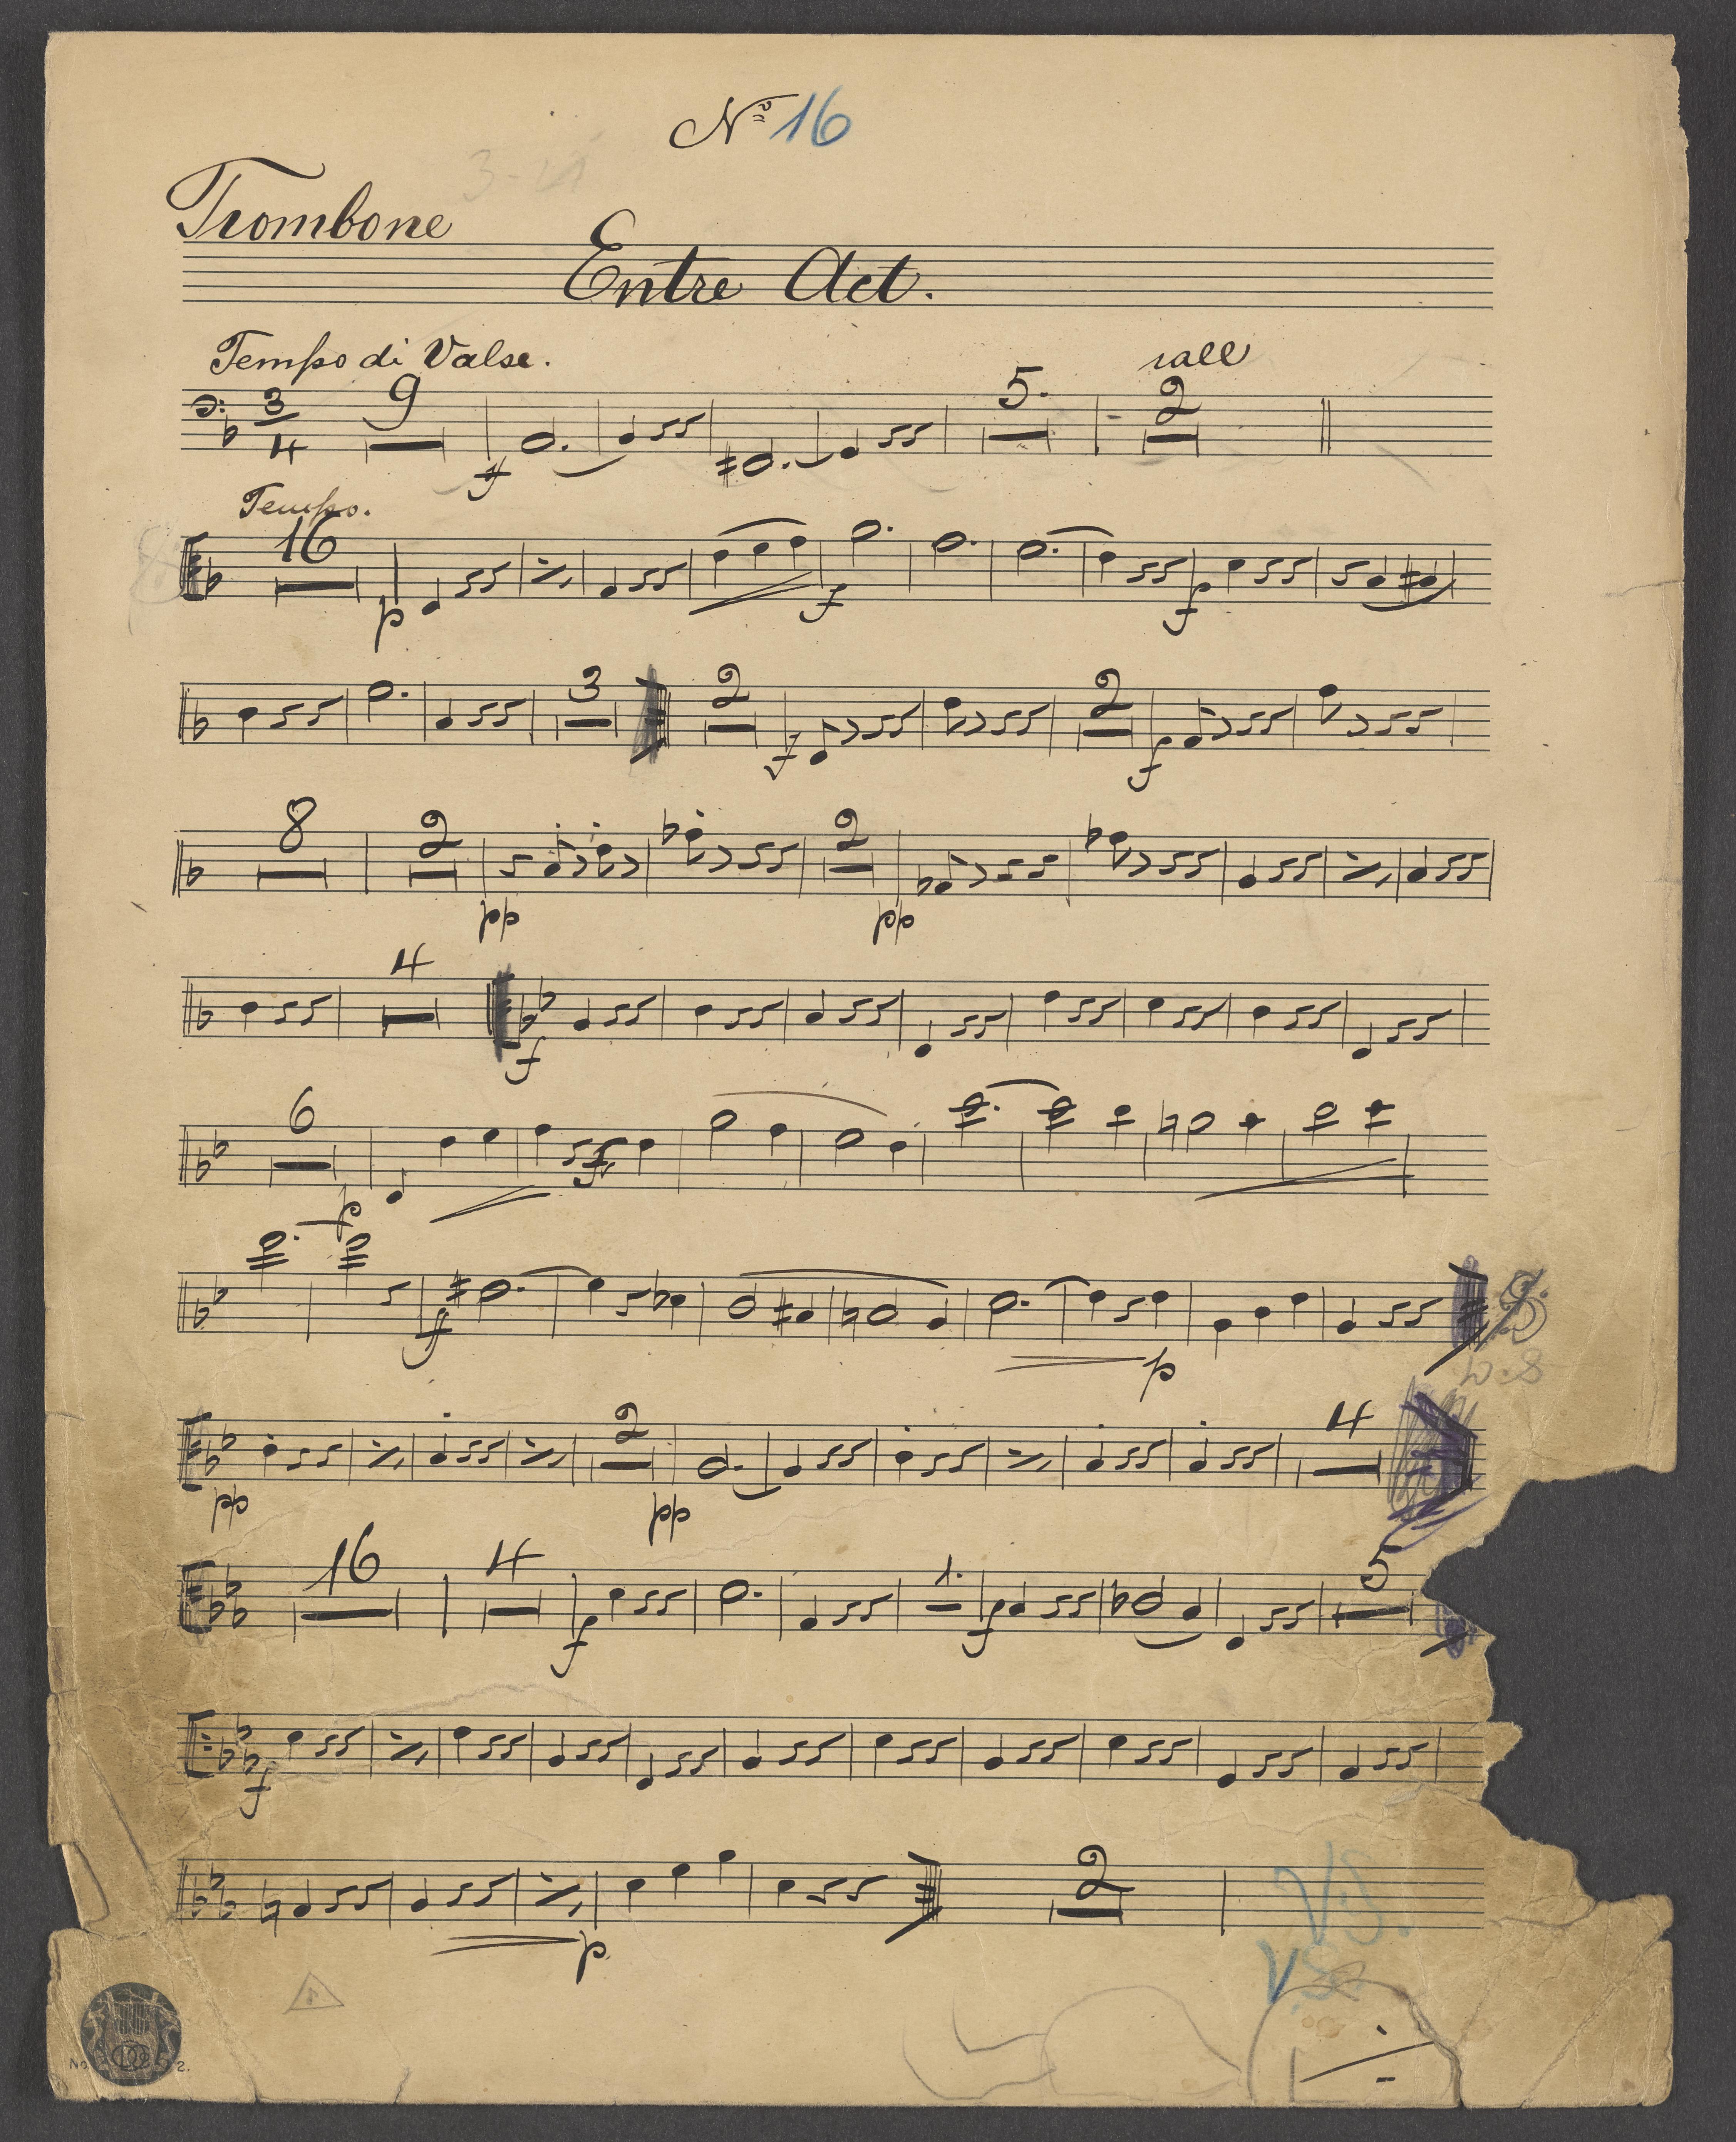 Nº 16
Trombone
Entre Act.
Tempo di Valse. rall
3 4 9 f 5. 2
Tempo.
16 p f f
3 2 f 2 f
8 2 pp 2 pp
4 f
6 p f
f p
pp 2 pp 4
16 4 f 1. f 5
f
p 2
V.S.
V.S.
No 2.